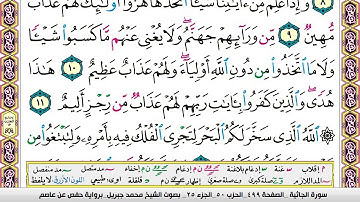 وَإِذَا عَلِمَ مِنْ ءَايَٰتِنَا شَيْـًٔا ٱتَّخَذَهَا هُزُوًا ۚ أُو۟لَٰٓئِكَ لَهُمْ عَذَابٌ
مُّهِينٌ ٩ مِّن وَرَآئِهِمْ جَهَنَّمُ ۖ وَلَا يُغْنِى عَنْهُم مَّا كَسَبُوا۟ شَيْـًٔا
وَلَا مَا ٱتَّخَذُوا۟ مِن دُونِ ٱللَّهِ أَوْلِيَآءَ ۖ وَلَهُمْ عَذَابٌ عَظِيمٌ ١٠ هَٰذَا
هُدًى ۖ وَٱلَّذِينَ كَفَرُوا۟ بِـَٔايَٰتِ رَبِّهِمْ لَهُمْ عَذَابٌ مِّن رِّجْزٍ أَلِيمٌ ١١
ٱللَّهُ ٱلَّذِى سَخَّرَ لَكُمُ ٱلْبَحْرَ لِتَجْرِىَ ٱلْفُلْكُ فِيهِ بِأَمْرِهِۦ وَلِتَبْتَغُوا۟ مِن
سورة الجاثية - الصفحة ٤٩٩ - الحزب ٥٠ - الجزء ٢٥ - بصوت الشيخ محمد جبريل - برواية حفص عن عاصم